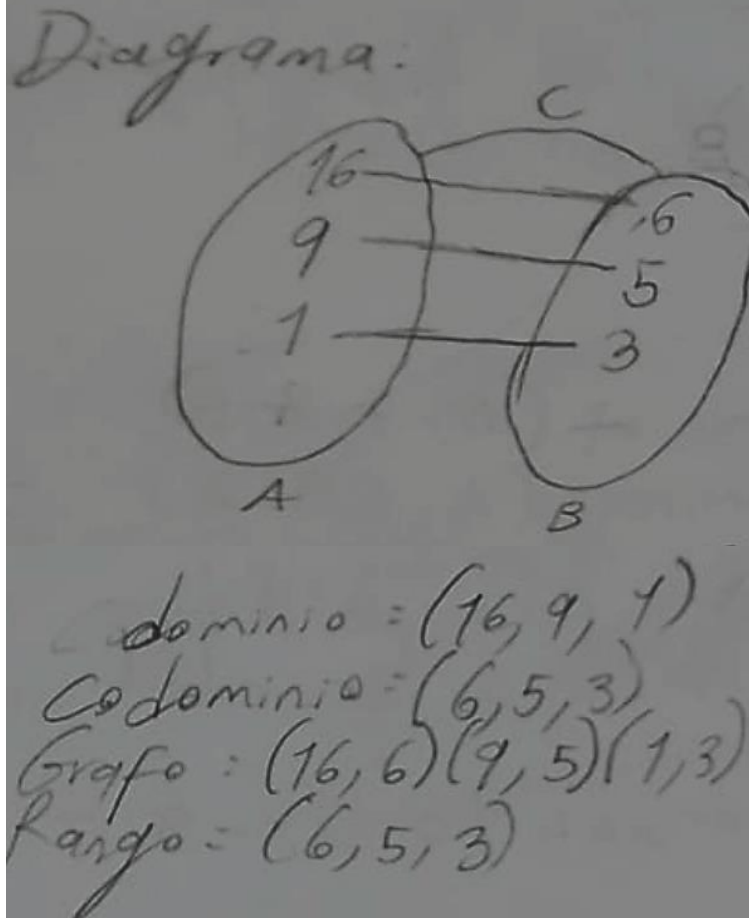 Diagrama:
C
16 .6
9 5
1 3
A
B
dominio = (16, 9, 1)
Codominio = (6, 5, 3)
Grafo : (16, 6) (9, 5) (1, 3)
Rango = (6, 5, 3)